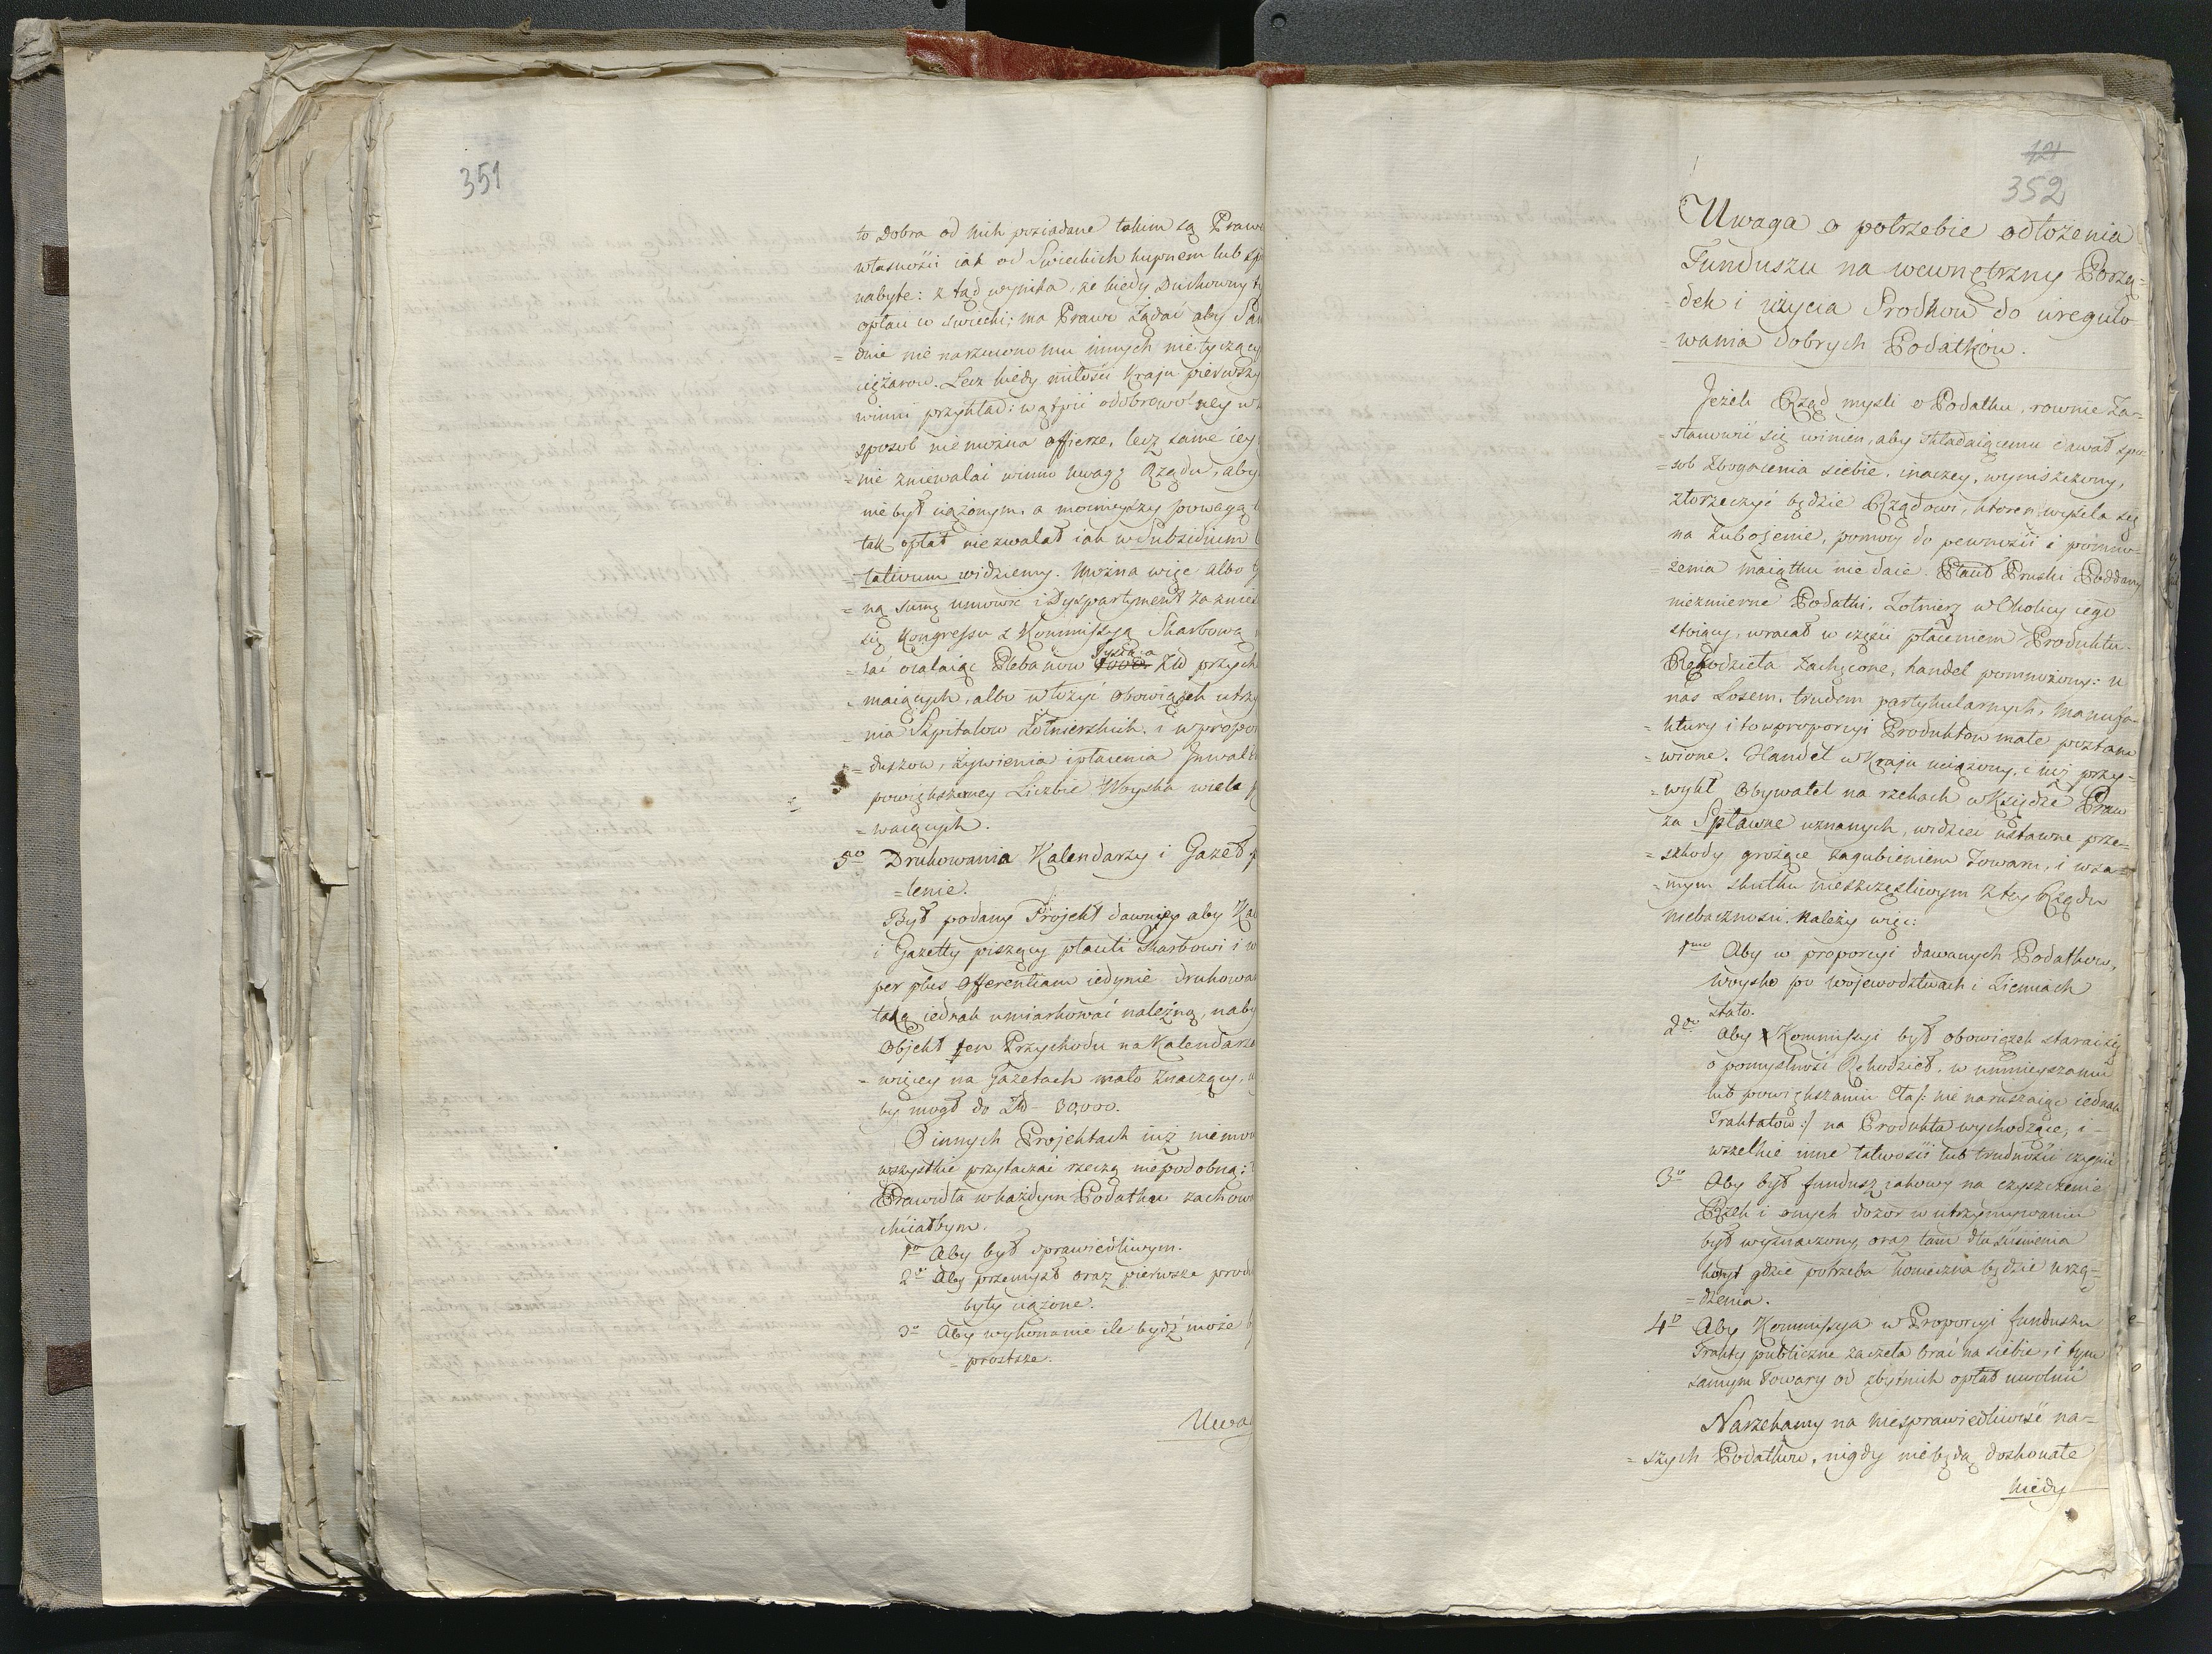 351
to Dobra od nich posiadane takim są Praw
własności iak od Swieckich kupnem lub
nabyte: z tąd wynika, że kiedy Duchowny
opłaci w swiecki; ma Prawo żądać aby
= dnie nie narzucono mu innych nie tyczący
ciężarow. Lecz kiedy miłości Kraju pierwszy
winni przykład: wątpić o dobrowolney w
sposob nie można offierze, lecz same iey
= nie zniewalać winno uwagę Rządu, aby
nie był ciążonym, a mocnieyszy powagą
tak opłat nie zwalał iak w Subsidium
= tativum widziemy. Można więc albo
= ną summę umowić i Dyspartyment za znies
się Kongressu z Kommissyą Skarbową
= zać ocalaiąc Plebanow Tysiąca Złł przych
= maiących, albo włożyć obowiązek utrzy
= nia Szpitalow żołnierskich, i w propor
= duszow, żywienia i płacenia Inwali
powiększoney Liczbie Woyska wiele
= waiących.
5to Drukowania Kalendarzy i Gazet
= lenie.
Był podany Projekt dawniey aby Ka
i Gazetty piszący płacili Skarbowi i
per plus Offerentiam iedynie drukowa
taką iednak umiarkować należną, naby
Objekt ten Przychodu na Kalendarz
= więcey na Gazetach mało znaczący,
by mogł do Złł - 30,000.
O innych Projektach iuż nie mow
wszystkie przytaczać rzeczą niepodobną:
Prawidła w każdym Podatku zachow
chciałbym.
1o Aby był sprawiedliwym.
2o Aby przemysł oraz pierwsze produ
były ciążone.
3o Aby wykonanie ile bydź może
= prostsze.
Uwa
121
352
Uwaga o potrzebie odłożenia
Funduszu na wewnętrzny Porzą=
= dek i użycia Srodkow do uregulo
= wania dobrych Podatkow.
Jeżeli Rząd mysli o Podatku, rownie Za=
= stanowić się winien, aby składaiącemu dawał spo=
= sob zbogacenia siebie, inaczey, wyniszczony,
złorzeczyć będzie Rządowi, ktoren wysila się
na zubożenie, pomocy do pewności i pomno=
= żenia maiątku nie daie. Płacił Pruski Poddany
niezmierne Podatki, żołnierz w Okolicy iego
stoiący, wracał w części płaceniem Produktu.
Rękodzieła zachęcone, handel pomnożony: u
nas Losem, trudem partykularnych, Manufa=
= ktury i to w proporcyi Produktow małe postano
= wione. Handel w Kraju uciążony, i iuż przy=
= wykł Obywatel na rzekach w Księdze Praw
za Spławne uznanych, widzieć ustawne prze=
= szkody grożące zagubieniem Towaru, i w sa=
= mym skutku nieszczęsliwym z tey Rządu
niebacznosci. Należy więc:
1mo Aby w proporcyi dawanych Podatkow,
Woysko po Wojewodztwach i Ziemiach
stało.
2do Aby Kommissyi był obowiązek starać się
o pomyslność Rękodzieł, w umnieyszaniu
lub powiększaniu Cła /: nie naruszaiąc iednak
Traktatow :/ na Produkta wychodzące, i -
wszelkie inne łatwości lub trudności czynić
3o Aby był fundusz iakowy na czyszczenie
Rzek i onych dozor w utrzymywaniu
był wyznaczony, oraz tam dla scisnienia
koryt gdzie potrzeba konieczna będzie urzą=
= dzenia.
4o Aby Kommissya w Proporcyi funduszu
Trakty publiczne zaczęła brać na siebie, i tym
samym Towary od zbytnich opłat uwolnić
Narzekamy na niesprawiedliwość na=
= szych Podatkow, nigdy nie będą doskonałe
kiedy